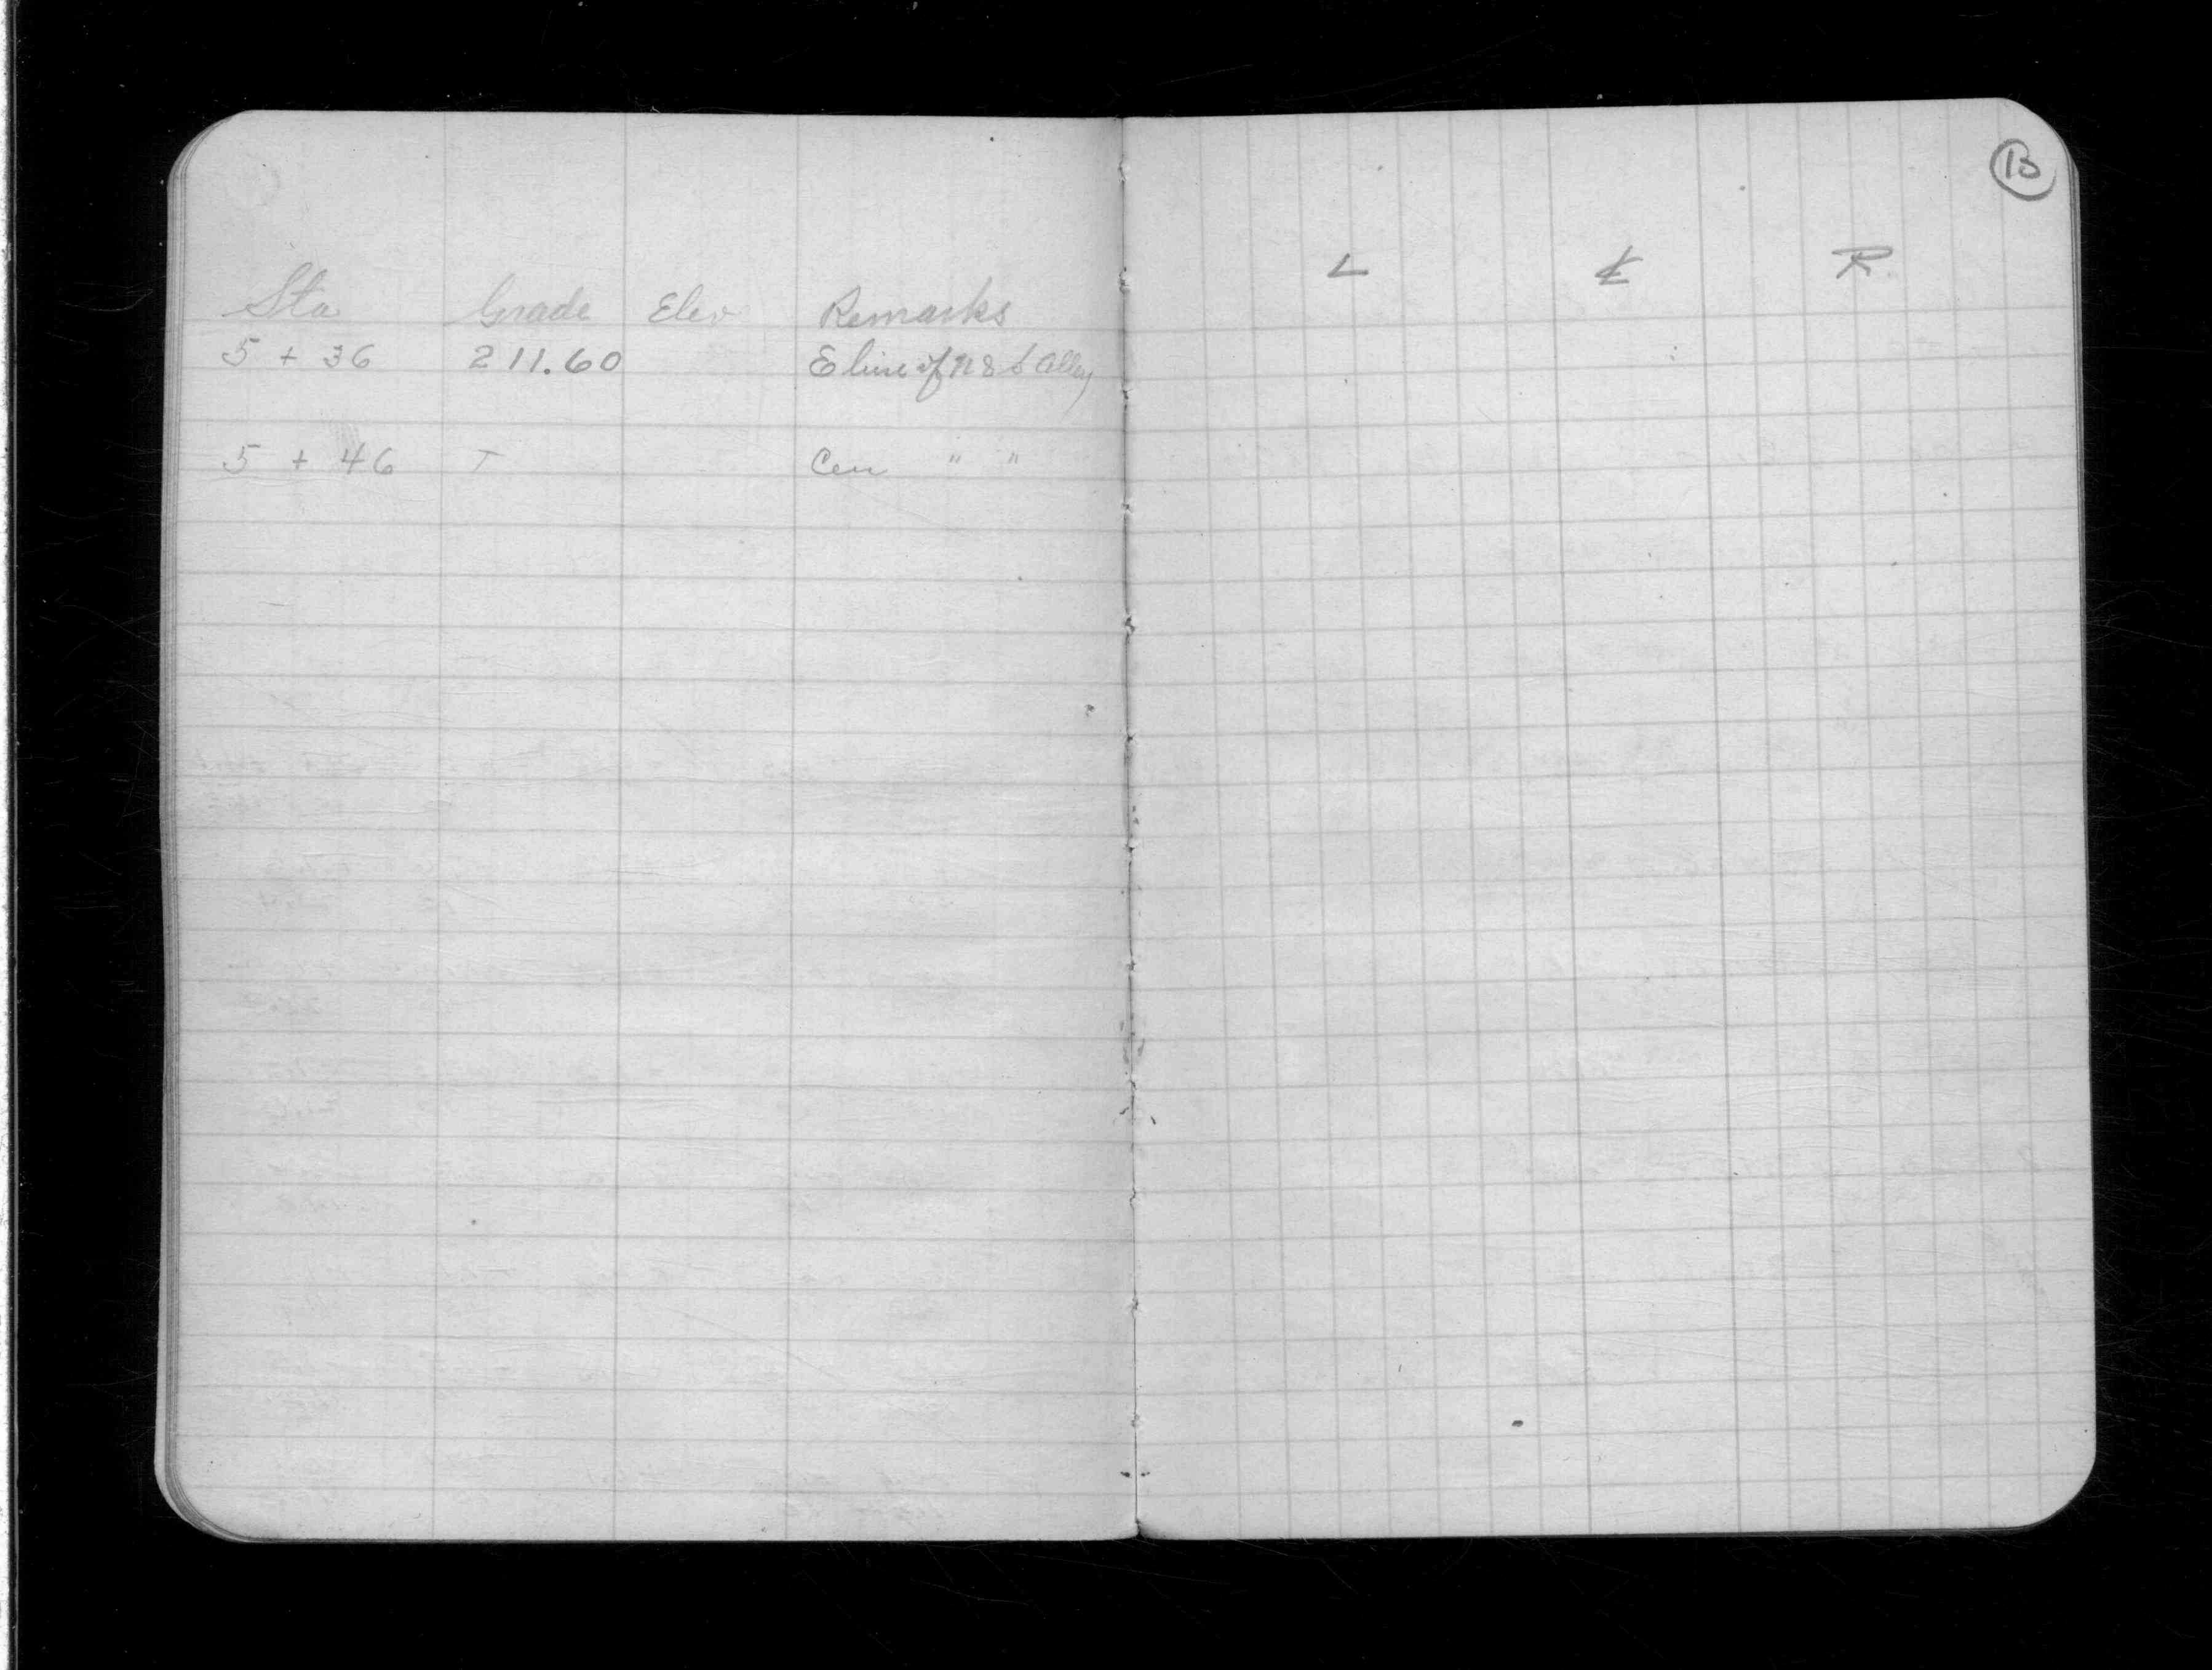 Sta Grade Elev Remarks
5 + 36 211.60 E line of N & S Alley
5 + 46 T Cen " "
13
L ℄ R